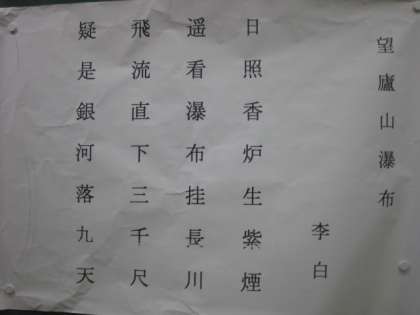 望廬山瀑布
李白
日照香炉生紫煙
遥看瀑布挂長川
飛流直下三千尺
疑是銀河落九天